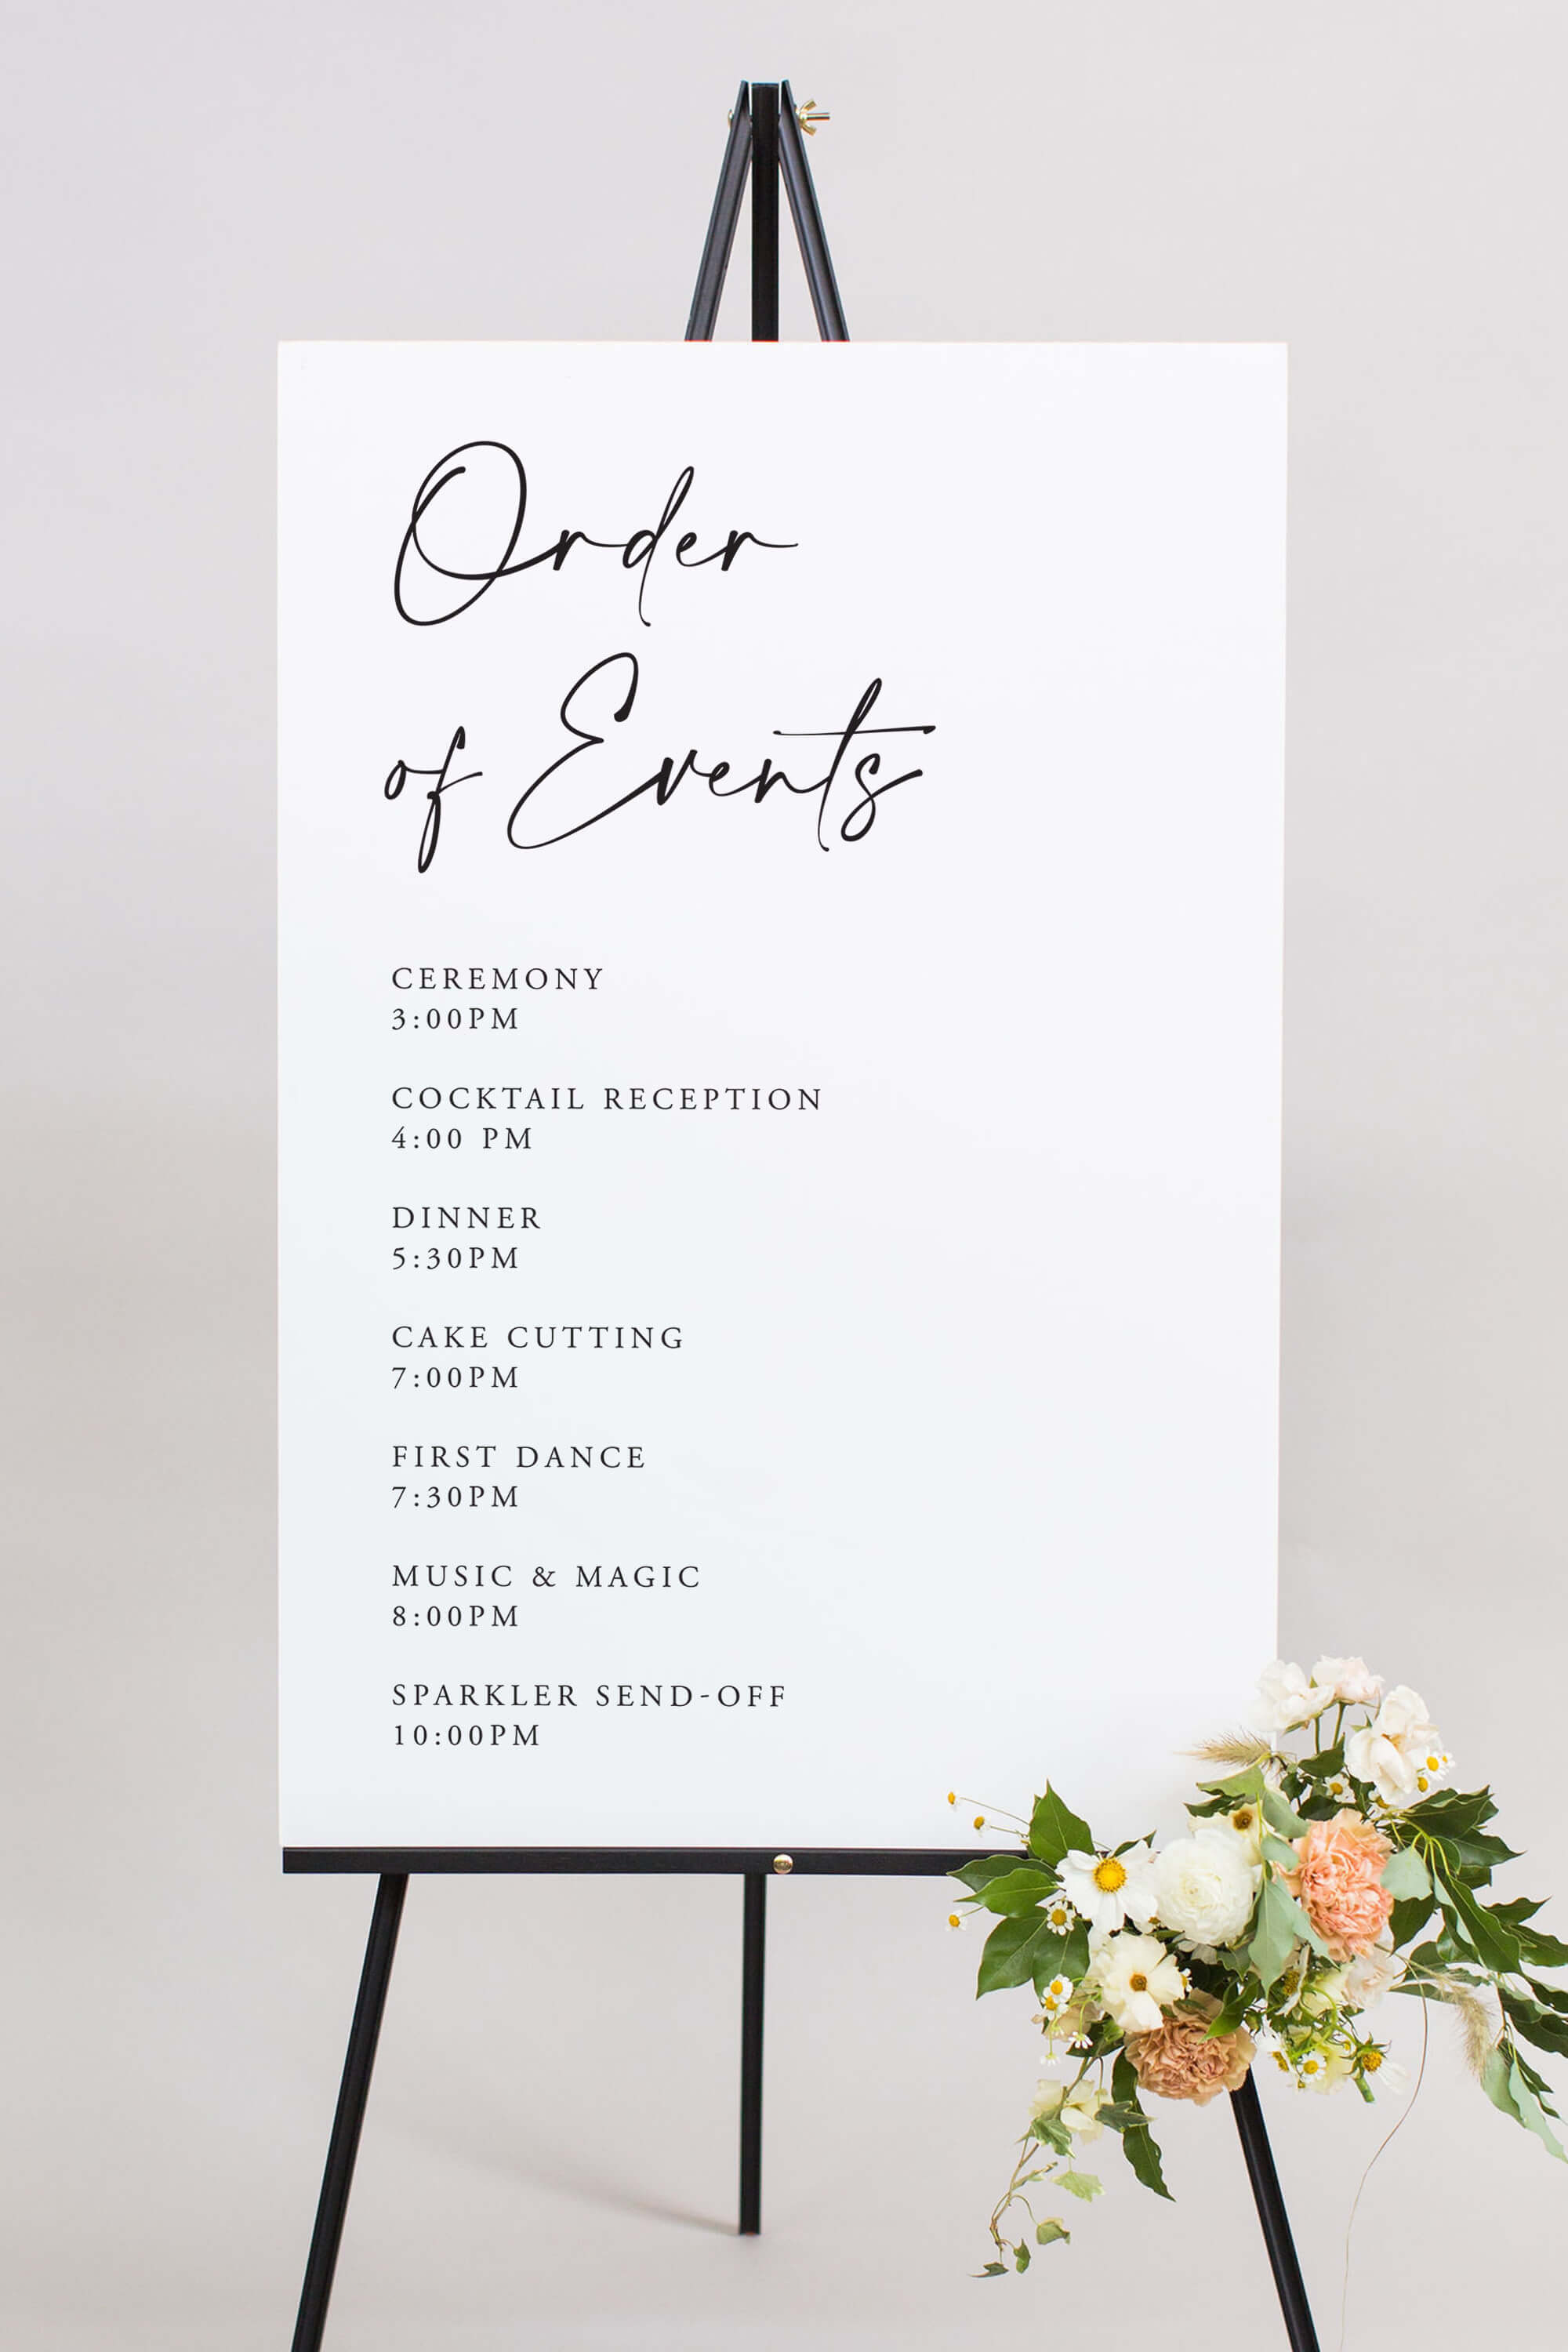 Order
of Events
CEREMONY
3:00PM
COCKTAIL RECEPTION
4:00 PM
DINNER
5:30PM
CAKE CUTTING
7:00PM
FIRST DANCE
7:30PM
MUSIC & MAGIC
8:00PM
SPARKLER SEND-OFF
10:00PM